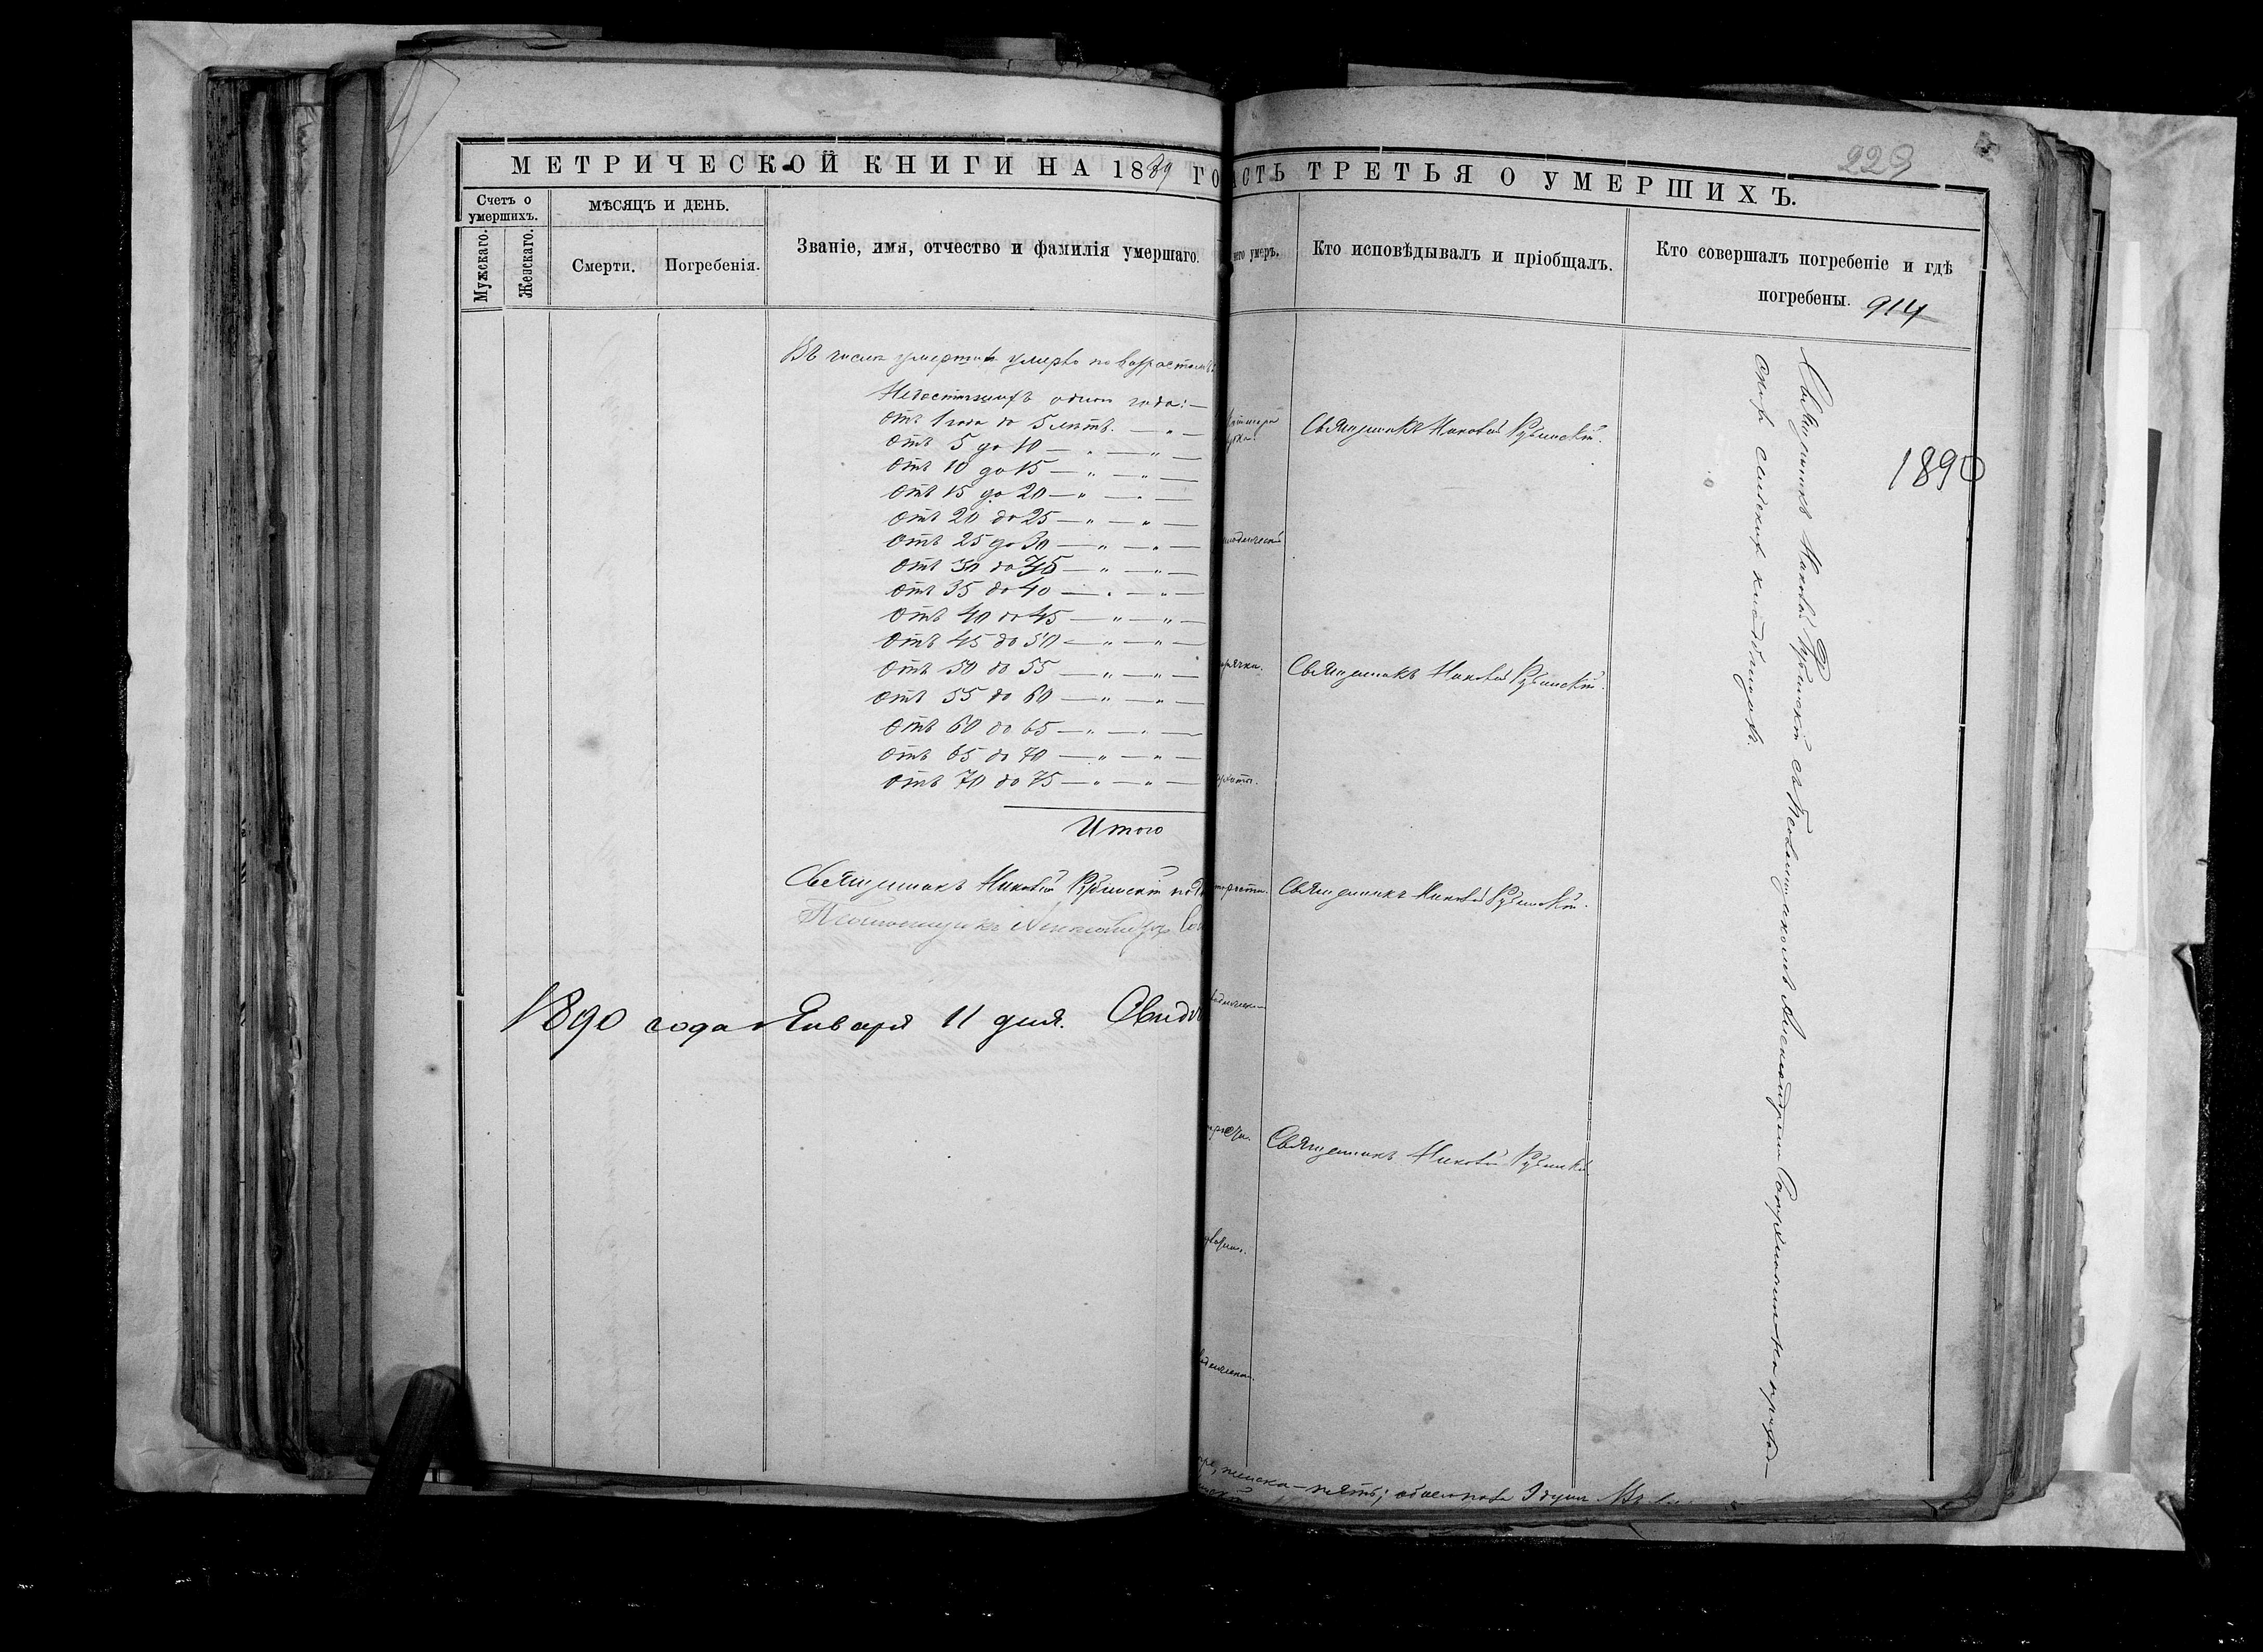 МЕТРИЧЕСКОЙ КНИГИ НА 1889 ГО
Счетъ о умершихъ.
Мужскаго.
Женскаго.
МѢСЯЦЪ И ДЕНЬ.
Смерти.
Погребенія.
Званіе, имя, отчество и фамилія умершаго.
Въ числѣ умершихъ умерло по возрастамъ:
Недостигшихъ одного года: —
Отъ 1 года до 5 лѣтъ. — „ —
Отъ 5 до 10 — „ — „ —
Отъ 10 до 15 — „ — „ —
Отъ 15 до 20 — „ — „ —
Отъ 20 до 25 — „ — „ —
Отъ 25 до 30 — „ — „ —
Отъ 30 до 35 — „ — „ —
Отъ 35 до 40 — „ — „ —
Отъ 40 до 45 — „ — „ —
Отъ 45 до 50 — „ — „ —
Отъ 50 до 55 — „ — „ —
Отъ 55 до 60 — „ — „ —
Отъ 60 до 65 — „ — „ —
Отъ 65 до 70 — „ — „ —
Отъ 70 до 75 — „ — „ —
Итого
Священникъ Рубинскій
Псаломщикъ Александръ
1890 года Января 11 дня. Свидѣ
229
АСТЬ ТРЕТЬЯ О УМЕРШИХЪ.
чего умеръ.
Кто исповѣдывалъ и пріобщалъ.
Кто совершалъ погребеніе и гдѣ
погребены. 914
1890
Священникъ Рубинскій.
Священникъ Рубинскій.
Священникъ Рубинскій.
Священникъ Рубинскій.
Священникъ Рубинскій съ Псаломщикомъ Александромъ на приход-
скихъ сельскихъ кладбищахъ.
женска — пять; обоего пола